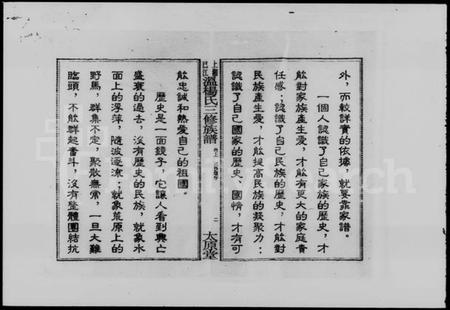 外，而較詳實的依據，就要靠家譜。
一個人認識了自己家族的歷史，才
能對家族產生愛，才能有更大的家庭責
任感；認識了自己民族的歷史，才能對
民族產生愛，才能提高民族的凝聚力；
認識了自己國家的歷史、國情，才有可
上
巴江溫楊氏三修族譜
二
太原堂
能忠誠和熱愛自己的祖國。
歷史是一面鏡子，它讓人看到興亡
盛衰的過去，沒有歷史的民族，就象水
面上的浮萍，隨波逐流；就象荒原上的
野馬，群集不定，聚散無常，一旦大難
臨頭，不能群起奮斗，沒有整體團結抗